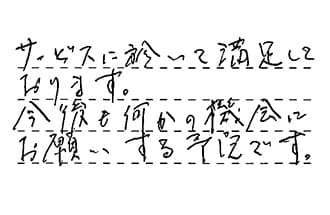 サービスに於いて満足して
おります。
今後も何かの機会に
お願いする予定です。